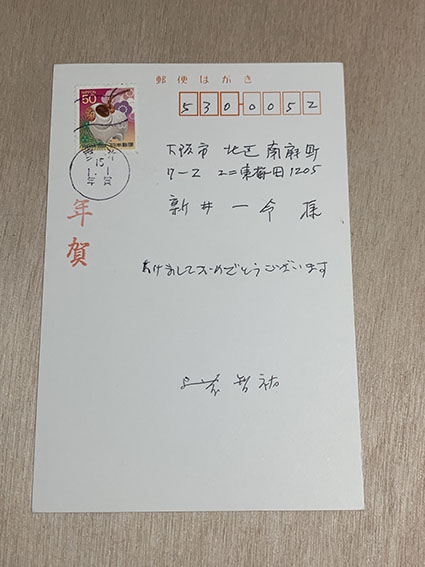 郵便はがき
NIPPON
50
日本郵便
530-0052
大阪市 北区 南扇町
7-2 ユニ東梅田 1205
新井 一令 様
年賀
あけましておめでとうございます
智祐